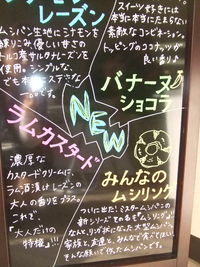 レーズン
ムシパン生地にシナモンを
練りこみ、優しい甘さの
トルコ産サルタナレーズンを
使用。シンプルな
でも本
スイーツ好きには
本当にたまらない
素敵なコンビネーション
トッピングのココナッツが
良い香り
バナーヌ
ショコラ
NEW
ラムカスタード
濃厚な
カスタードクリームに、
ラム酒漬けレーズンの
大人の香りをプラス。
これぞ、
「大人だけの
特権」!!!
みんなの
ムシリング
ついに出た!ミスタームシパンの
新シリーズその名も「ムシリング」
なんと、リング状になった大型ムシパン
家族と、友達と、みんなで食べてほしい
そんな願いで作ったムシパンです。